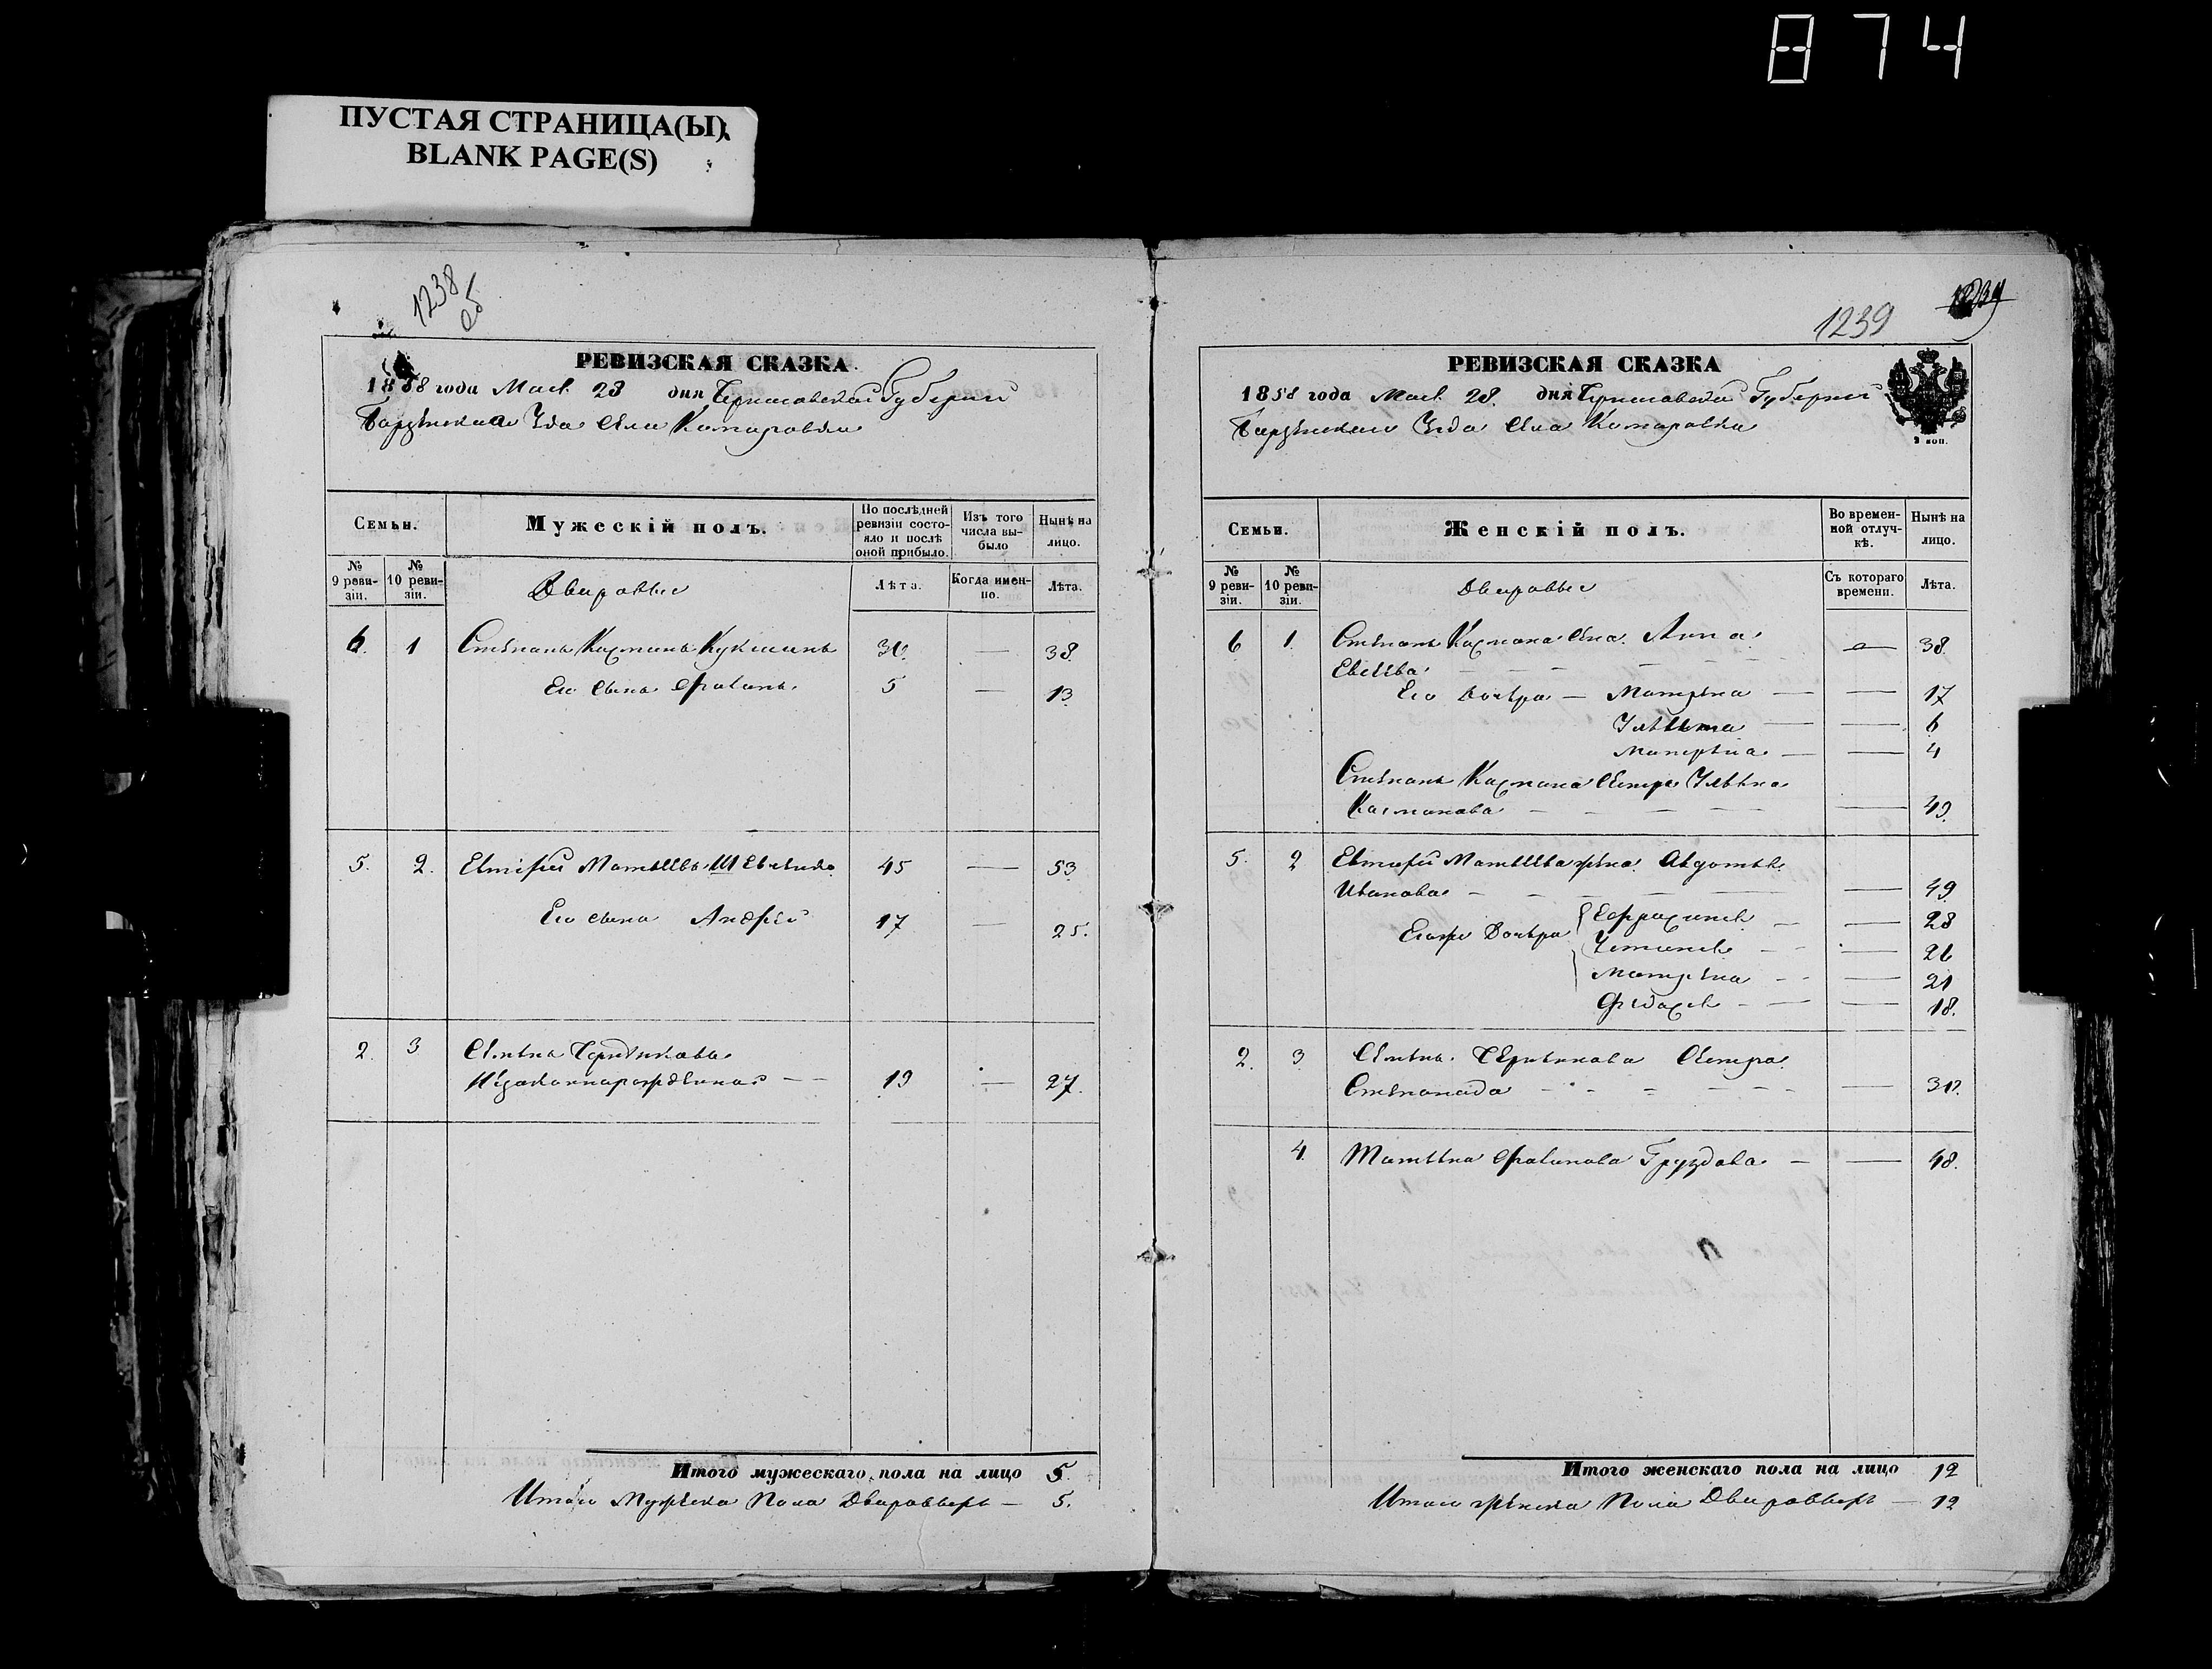 874
ПУСТАЯ СТРАНИЦА(Ы)
BLANK PAGE(S)
1238
об
РЕВИЗСКАЯ СКАЗКА.
1858 года Маія 28 дня Черниговской Губерніи
Борзенскаго Уѣзда Села Комаровки
Семьи.
Мужескій полъ.
По послѣдней ревизіи состояло и послѣ оной прибыло.
Изъ того числа выбыло
Нынѣ на лицо.
№ 9 ревизіи.
№ 10 ревизіи.
Дворовые
Лѣта.
Когда именно.
Лѣта.
6. 1 Степанъ Козминъ 30. — 38.
Его сынъ 5 — 13.
5. 2. Евтифій Матвѣевъ Шевченко 45 — 53
Его сынъ Андрей 17 — 25.
2. 3 Семенъ
Незаконнорожденной — — 19 — 27.
Итого мужескаго пола на лицо 5.
Итого Мужеска Пола Дворовыхъ — 5.
1239
1239
РЕВИЗСКАЯ СКАЗКА
1858 года Маія 28. дня Черниговской Губерніи
Борзенскаго Уѣзда Села Комаровки
2 коп.
Семьи.
Женскій полъ.
Во временной отлучкѣ.
Нынѣ на лицо.
№ 9 ревизіи.
№ 10 ревизіи.
Дворовые
Съ котораго времени.
Лѣта.
6 1. Степана Козмина жена Анна
— 38.
Его Дочера — Матрена — — 17
— — 6
Матрена — — 4
Степана Козмина Сестра Ульяна
Козминова — 49.
5. 2 Евтифія Матвѣева жена Авдотья
Иванова — — 49
Егоже Дочера Ефросинья — — 28
Устинья — — 26
Матрена — — 21
Федосья — — 18.
2. 3 Семена Сестра
Степанида — — 31.
4. Татьяна Груздова — — 48.
Итого женскаго пола на лицо 12
Итого женска Пола Дворовыхъ — 12